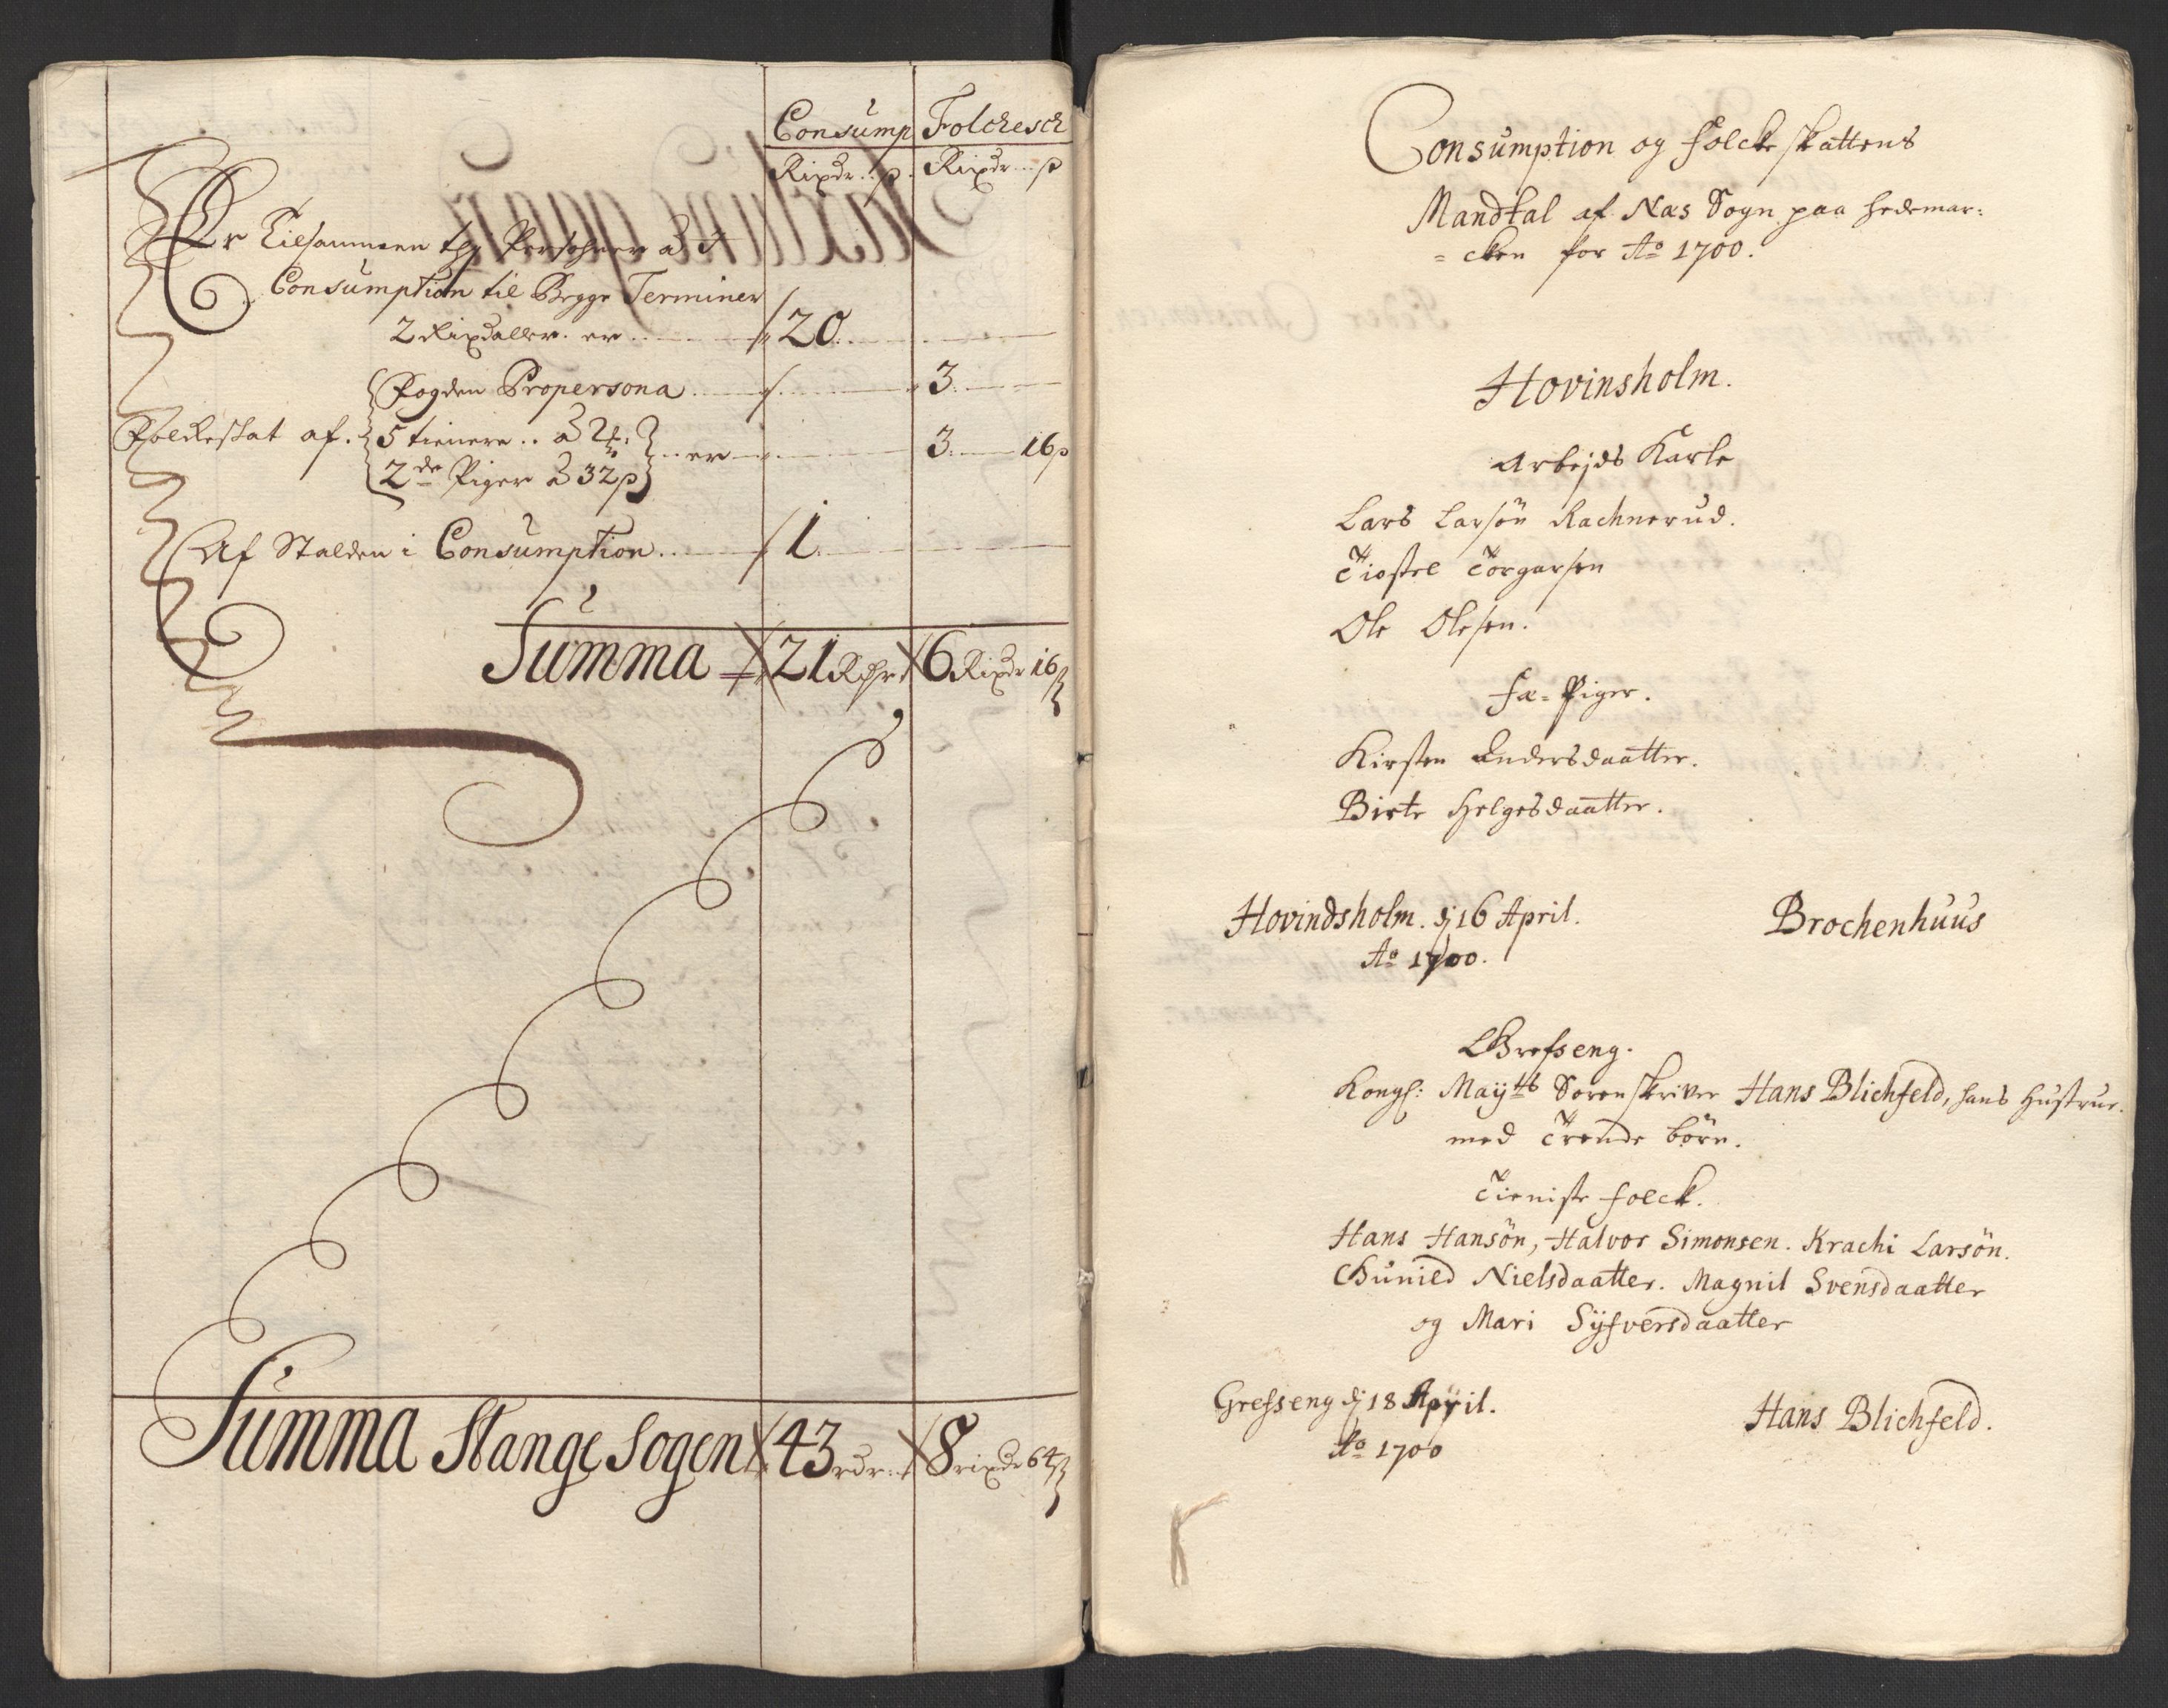 Consump Folckesch
Rixdr .. ß. Rixdr ... ß
Er Tilsammen Persohner
Consumption til Begge Terminer
2 Rixdaller. er ... 20
Fogden Propersona ... 3
Folckeskat af. 5 tienere .. à 2 ... er ... 3 16ß
2de Piger à 32ß
Af Stalden i Consumption ... 1
Summa 21 Rdr 6 Rixdr 16ß
Summa Stange Sogen 43 rdr 8 rixdr 64ß
Consumption og folckeskattens
Mandtal af Næs Sogn paa hedemar:
= cken for Ao 1700.
Hovinsholm.
Arbejds Karle
Lars Larsön Rachnerud.
Tiostel Torgersen
Ole Olesen.
fæ-Piger.
Kirsten Andersdaatter.
Birte Helgesdaatter.
Hovindsholm. dj 16 April.
Ao 1700.
Brochenhuus
Grefseng.
Kongl: Mayts Sorenskriver Hans Blichfeld, hans Hustrue.
med Trende börn.
Tieniste folck.
Hans Hansön, Halvor Simonsen. Krachi Larsön.
Gunild Nielsdaatter. Magnil Svensdaatter
og Mari Syfversdaatter
Grefseng dj 18 April.
Ao 1700
Hans Blichfeld.